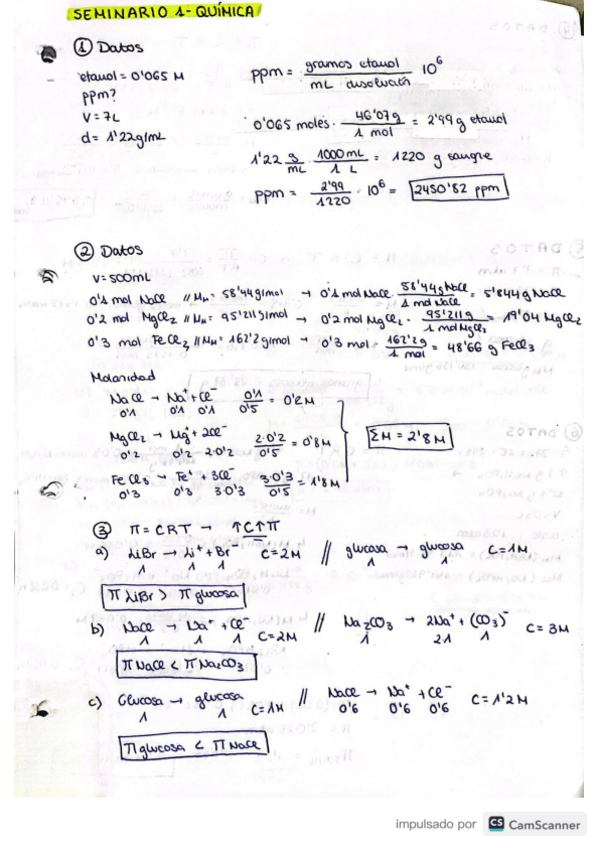 SEMINARIO 1 - QUÍMICA
① Datos
etanol = 0'065 M
ppm?
V = 7L
d = 1'22g/mL
ppm = gramos etanol / mL disolución 10⁶
0'065 moles · 46'07g / 1 mol = 2'99 g etanol
1'22 g/mL · 1000mL / 1 L = 1220 g sangre
ppm = 2'99 / 1220 · 10⁶ = 2450'82 ppm
② Datos
V = 500mL
0'1 mol NaCl // Mm = 58'44g/mol → 0'1 mol NaCl · 58'44g NaCl / 1 mol NaCl = 5'844g NaCl
0'2 mol MgCl₂ // Mm = 95'211g/mol → 0'2 mol MgCl₂ · 95'211g / 1 mol MgCl₂ = 19'04 MgCl₂
0'3 mol FeCl₃ // Mm = 162'2g/mol → 0'3 mol · 162'2g / 1 mol = 48'66 g FeCl₃
Molaridad
NaCl → Na⁺ + Cl⁻ 0'1 / 0'5 = 0'2M
0'1 0'1 0'1
MgCl₂ → Mg⁺ + 2Cl⁻ 2·0'2 / 0'5 = 0'8M
0'2 0'2 - 2·0'2
ΣM = 2'8 M
FeCl₃ → Fe⁺ + 3Cl⁻ 3·0'3 / 0'5 = 1'8M
0'3 0'3 3·0'3
③ π = CRT → ↑C↑π
a) LiBr → Li⁺ + Br⁻ C=2M // glucosa → glucosa C=1M
1 1 1 1 1
π LiBr > π glucosa
b) NaCl → Na⁺ + Cl⁻ C=2M // Na₂CO₃ → 2Na⁺ + (CO₃)⁻ C = 3M
1 1 1 1 21 1
π NaCl < π Na₂CO₃
c) Glucosa → glucosa C=1M // NaCl → Na⁺ + Cl⁻ C = 1'2M
1 1 0'6 0'6 0'6
π glucosa < π NaCl
impulsado por CS CamScanner